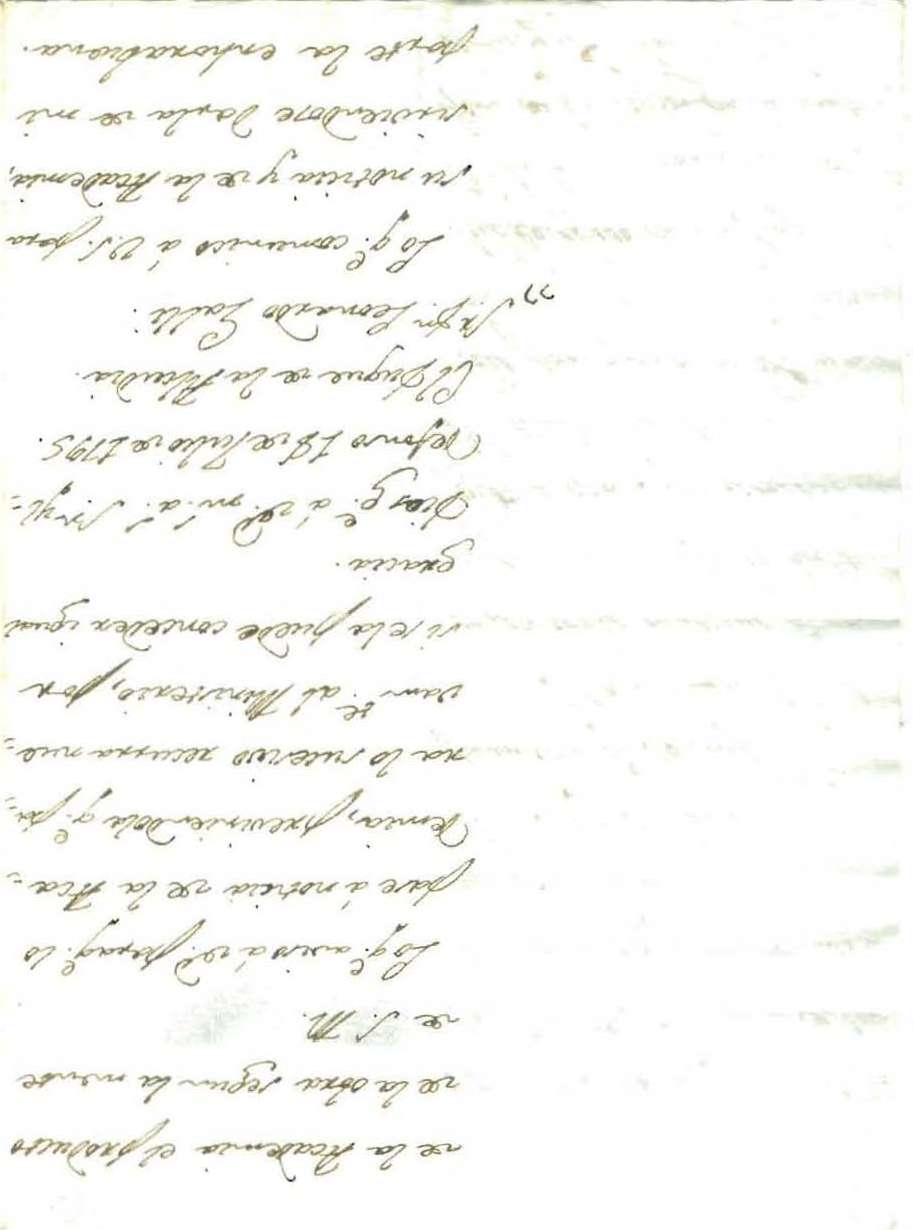 de la Academia el producto
de la obra segun la mente
de S. M.
Lo q.e aviso á Vd. paraq.e lo
pase á noticia de la Aca-
demia, previniendola q.e pa-
ra lo sucesivo recurra nue-
vam.te al Ministerio, por
si se la puede conceder igual
gracia.
Dios g.e á Vd. m.s a.s S.n Yl-
defonso 18 de Julio de 1795.
El Duque de la Alcudia.
S.r D.n Leonardo Galli."
Lo q.e comunico á V.S. para
su noticia y de la Academia,
sirviendose darla de mi
parte la enhorabuena.